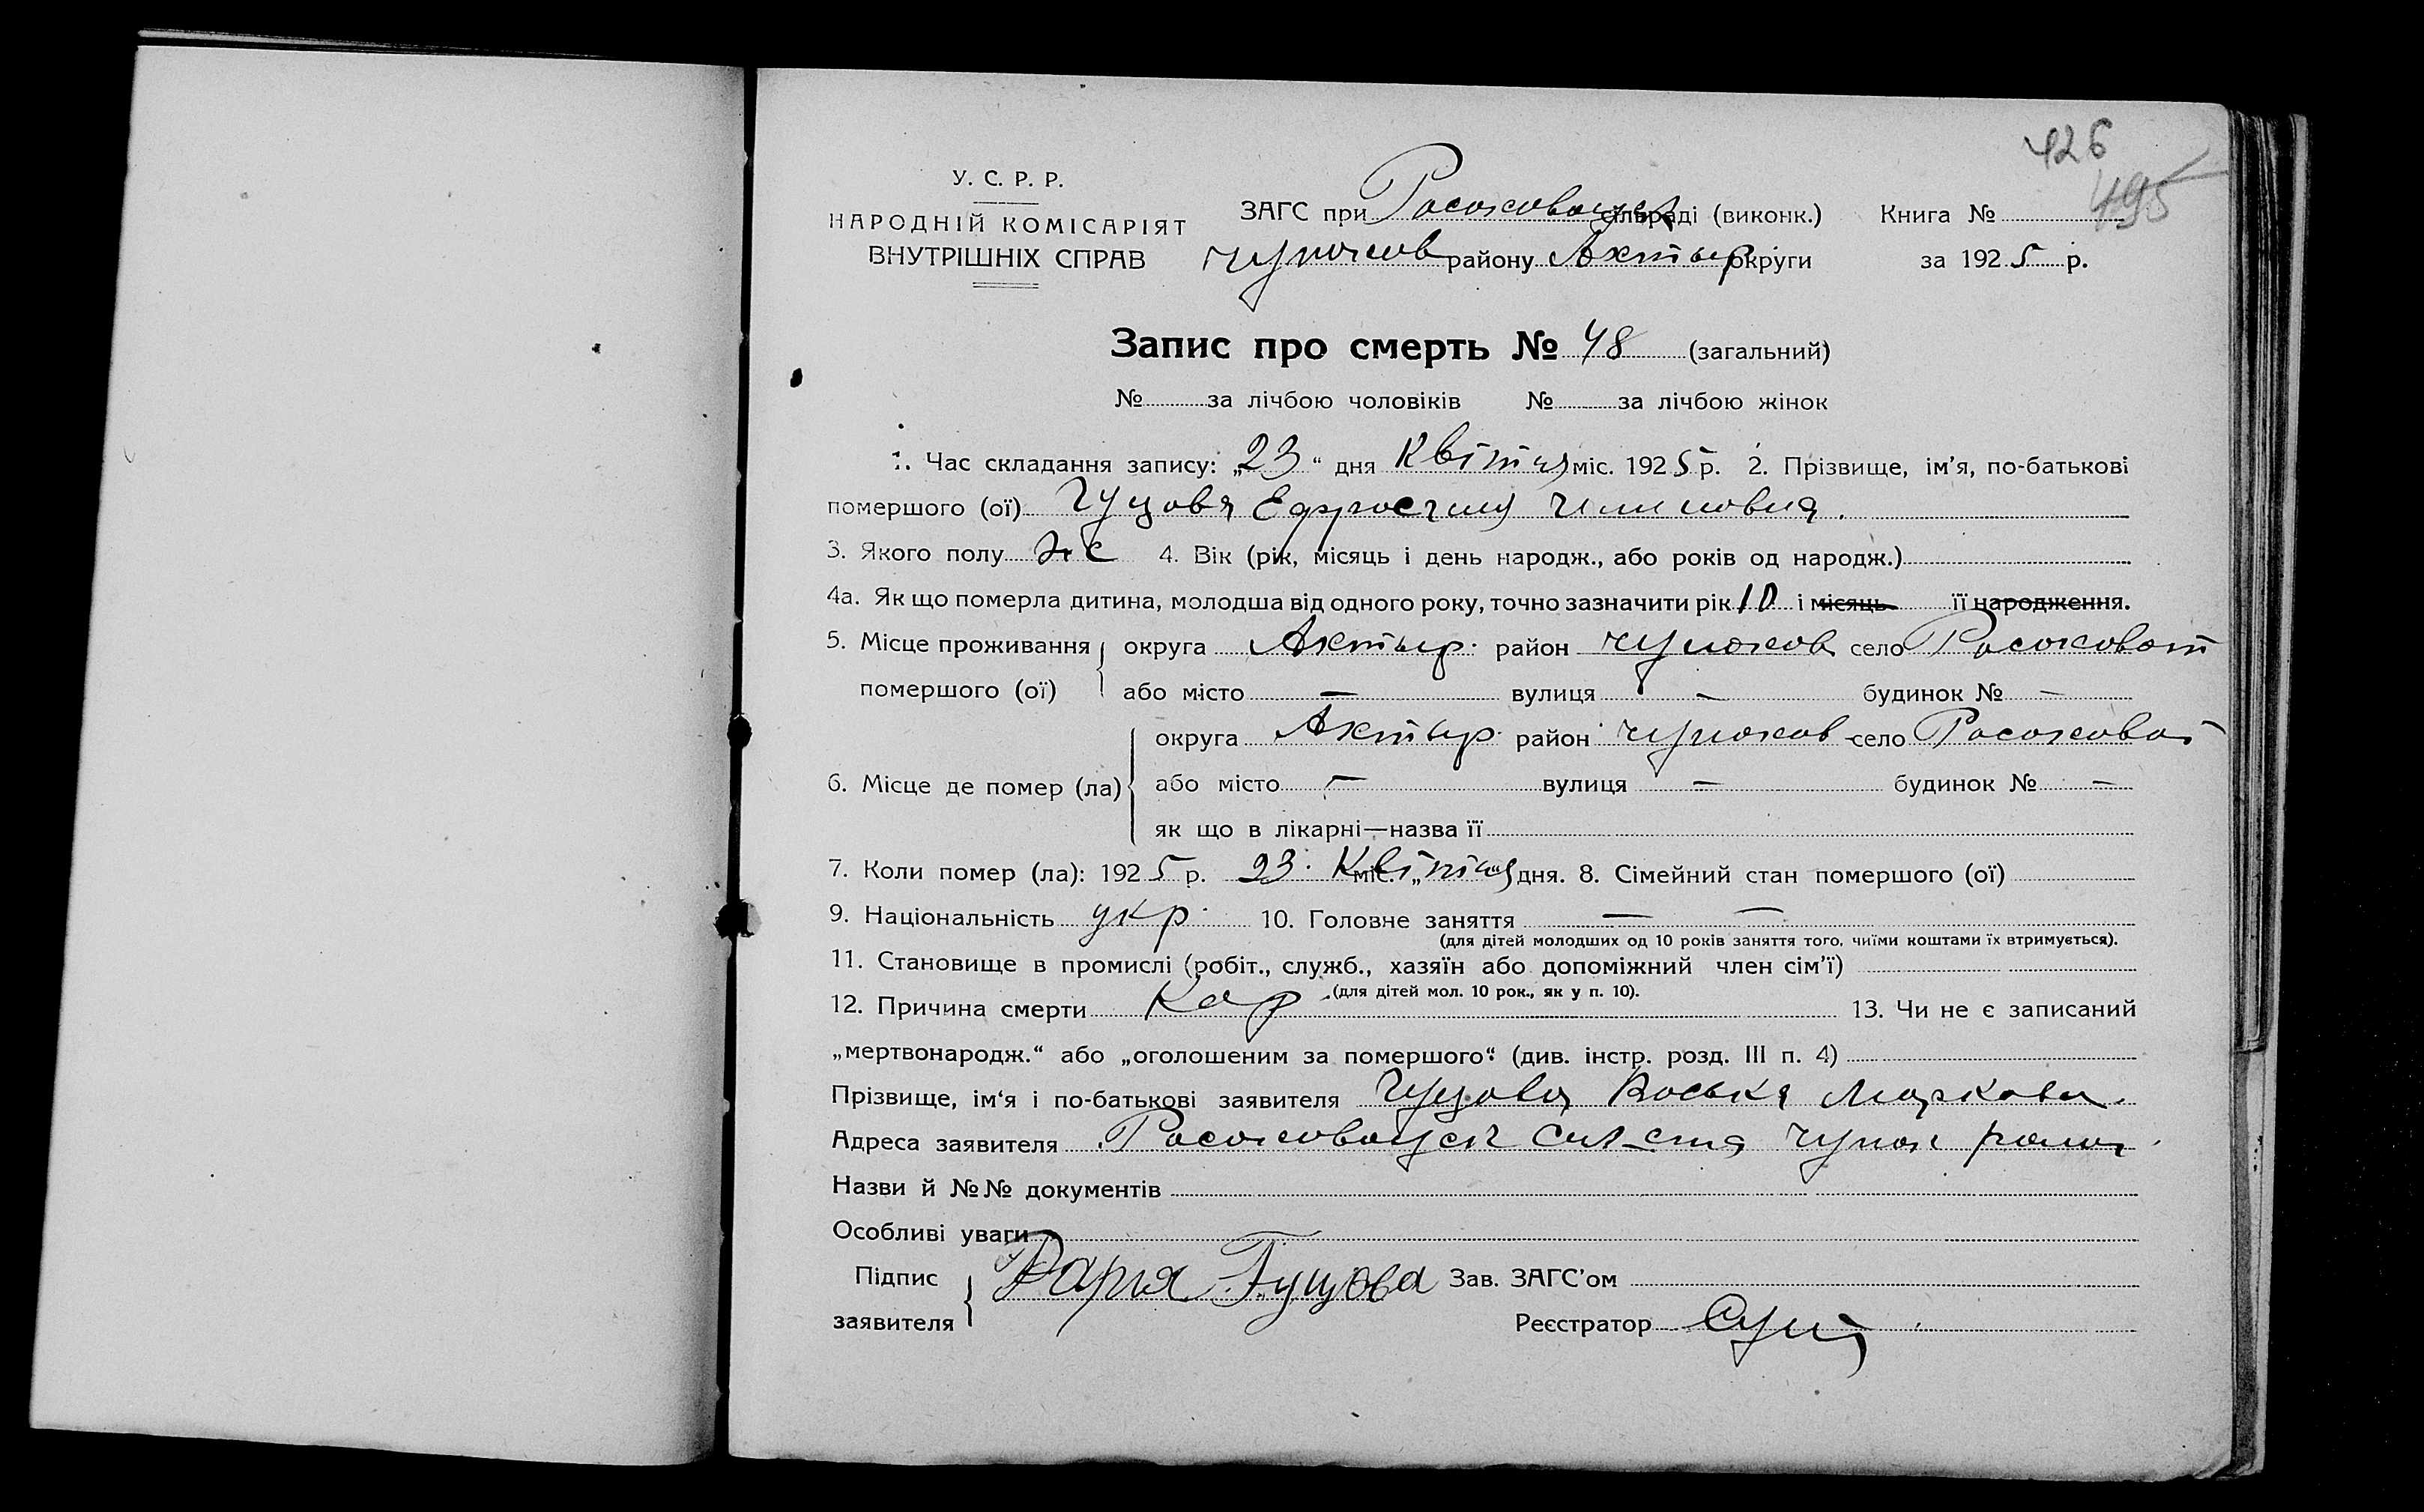 426
495
У. С. Р. Р.
НАРОДНІЙ КОМІСАРІЯТ
ВНУТРІШНІХ СПРАВ
ЗАГС при Росоховацк сільраді (виконк.) Книга №
Чупахов району Ахтыр округи за 1925 р.
Запис про смерть № 48 (загальний)
№ за лічбою чоловіків № за лічбою жінок
1. Час складання запису: „23“ дня Квітня міс. 1925 р. 2. Прізвище, ім’я, по-батькові
помершого (ої) Гуцова Ефросиния
3. Якого полу же 4. Вік (рік, місяць і день народж., або років од народж.)
4а. Як що померла дитина, молодша від одного року, точно зазначити рік 10 і місяць її народження.
5. Місце проживання округа Ахтыр. район Чупахов село Росоховат
помершого (ої) або місто — вулиця — будинок № —
округа Ахтыр. район Чупахов село Росоховат
6. Місце де помер (ла) або місто — вулиця — будинок № —
як що в лікарні—назва її
7. Коли помер (ла): 1925 р. 23. Квітня міс. „ дня. 8. Сімейний стан помершого (ої)
9. Національність укр. 10. Головне заняття — —
(для дітей молодших од 10 років заняття того, чиїми коштами їх втримується).
11. Становище в промислі (робіт., служб., хазяїн або допоміжний член сім’ї)
(для дітей мол. 10 рок., як у п. 10).
12. Причина смерти Кор 13. Чи не є записаний
„мертвонародж.“ або „оголошеним за помершого“ (див. інстр. розд. III п. 4)
Прізвище, ім‘я і по-батькові заявителя Гуцова Маркова.
Адреса заявителя Росоховацк Чупах
Назви й №№ документів
Особливі уваги
Підпис
заявителя Дарья Гуцова Зав. ЗАГС’ом
Реєстратор